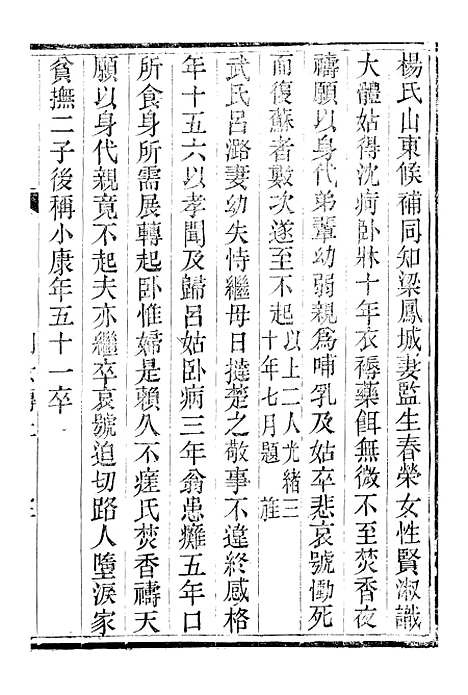 楊氏山東候補同知梁鳳城妻監生春榮女性賢淑識
大體姑得沈痾卧牀十年衣褥藥餌無微不至焚香夜
禱願以身代弟輩幼弱親爲哺乳及姑卒悲哀號慟死
而復蘇者數次遂至不起以上二人光緒三
十年七月題 旌
武氏呂潞妻幼失恃繼母日撻楚之敬事不違終感格
年十五六以孝聞及歸呂姑卧病三年翁患癱五年口
所食身所需展轉起卧惟婦是賴久不瘥氏焚香禱天
願以身代親竟不起夫亦繼卒哀號迫切路人墮淚家
貧撫二子後稱小康年五十一卒